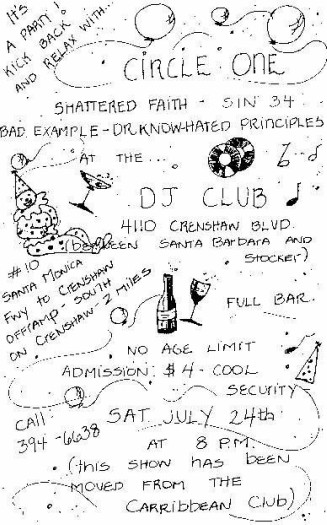 IT'S
A PARTY!
KICK BACK
AND RELAX WITH...
CIRCLE ONE
SHATTERED FAITH - SIN 34
BAD EXAMPLE - DR.KNOW-HATED PRINCIPLES
AT THE ...
DJ CLUB
4110 CRENSHAW BLVD.
(between SANTA BARBARA AND
STOCKER)
#10
SANTA MONICA
FWY to CRENSHAW
OFFRAMP - SOUTH
ON CRENSHAW - 2 MILES
FULL BAR.
NO AGE LIMIT
ADMISSION: $4 - COOL
SECURITY
CALL
394-6638
SAT JULY 24th
AT 8 P.M.
(this SHOW HAS BEEN
MOVED FROM THE
CARRIBBEAN CLUB)